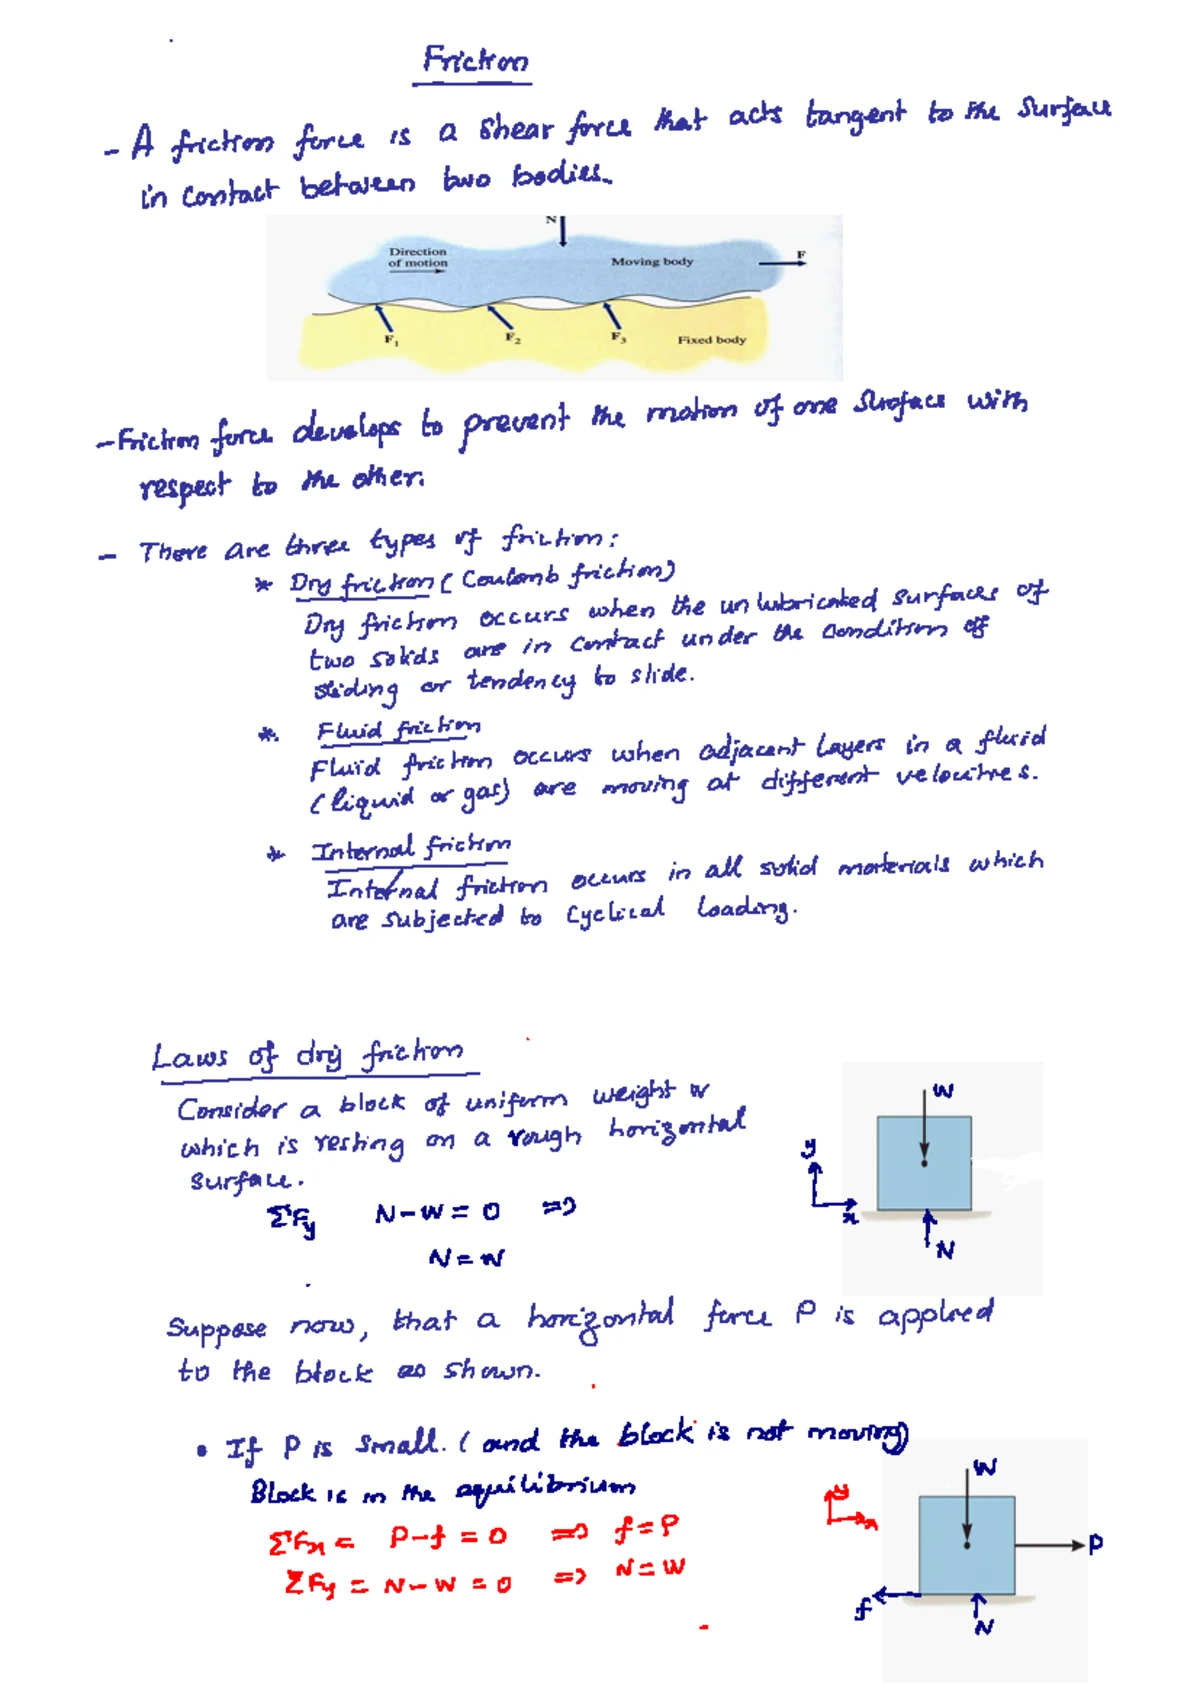 Friction
- A friction force is a shear force that acts tangent to the surface
in contact between two bodies.
N
Direction
of motion
Moving body
F
F1
F2
F3
Fixed body
- Friction force develops to prevent the motion of one surface with
respect to the other.
- There are three types of friction:
* Dry friction (Coulomb friction)
Dry friction occurs when the unlubricated surfaces of
two solids are in contact under the condition of
sliding or tendency to slide.
* Fluid friction
Fluid friction occurs when adjacent layers in a fluid
(liquid or gas) are moving at different velocities.
* Internal friction
Internal friction occurs in all solid materials which
are subjected to cyclical loading.
Laws of dry friction
Consider a block of uniform weight W
which is resting on a rough horizontal
surface.
ΣFy N-W = 0 ⇒
N = W
W
y
x
N
Suppose now, that a horizontal force P is applied
to the block as shown.
• If P is small. (and the block is not moving)
Block is in the equilibrium
ΣFx = P-f = 0 ⇒ f = P
ΣFy = N-W = 0 ⇒ N = W
W
y
x
P
f
N